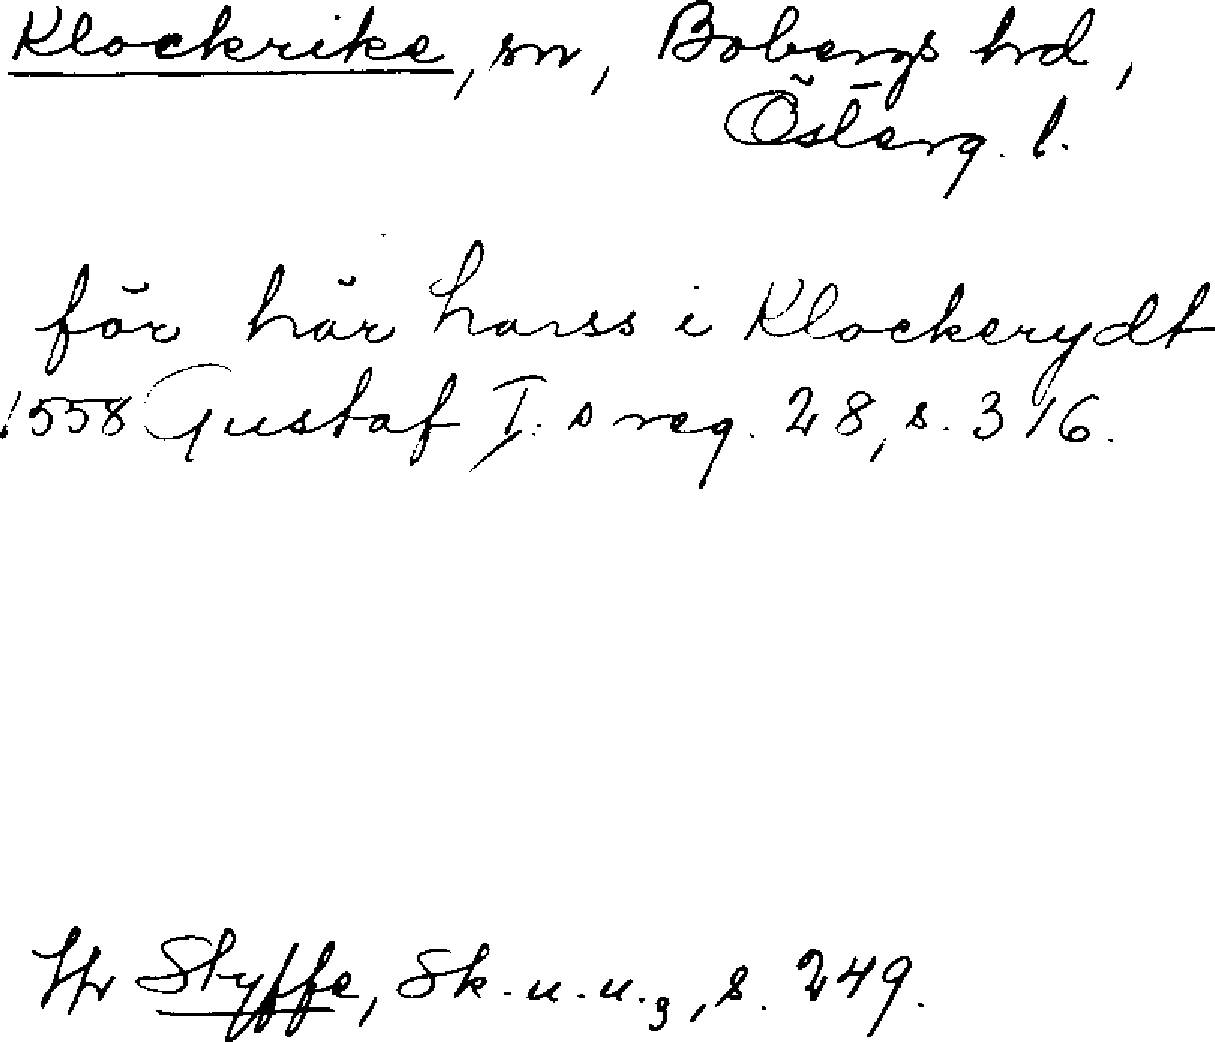 Klockrike, sn, Bobergs hd,
Österg. l.
för här hanss i Klockerydt
1558 Gustaf I:s reg. 28, s. 316.
Jfr Styffe, Sk. u. u. 3, s. 249.